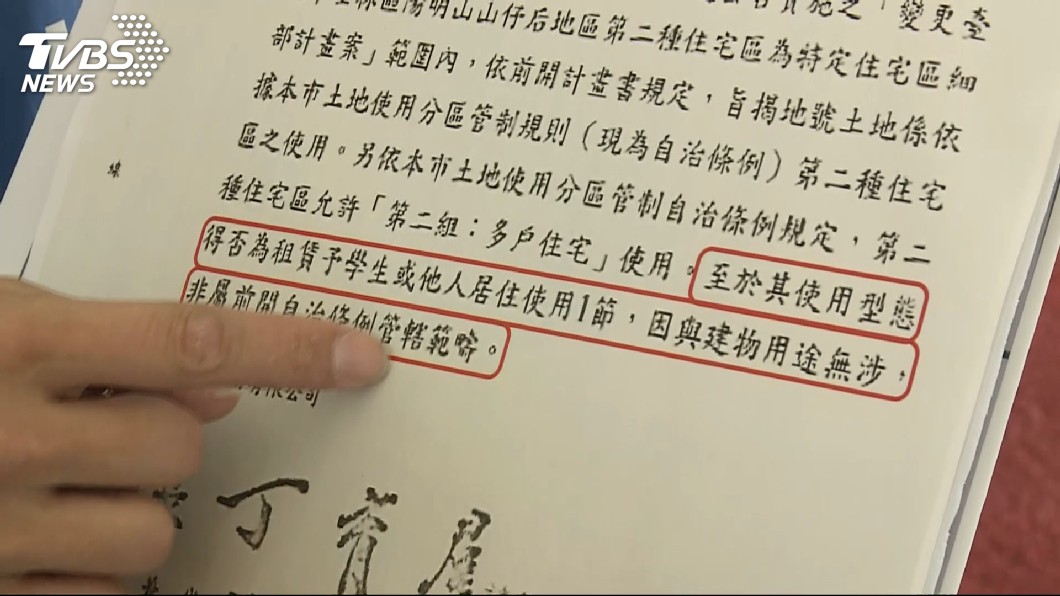 TVBS
NEWS
區陽明山山仔后地區第二種住宅區為特定住宅區細
部計畫案」範圍內，依前開計畫書規定，旨揭地號土地係依
據本市土地使用分區管制規則（現為自治條例）第二種住宅
區之使用。另依本市土地使用分區管制自治條例規定，第二
種住宅區允許「第二組：多戶住宅」使用。至於其使用型態
得否為租賃予學生或他人居住使用1節，因與建物用途無涉，
非屬前開自治條例管轄範疇。
有限公司
線